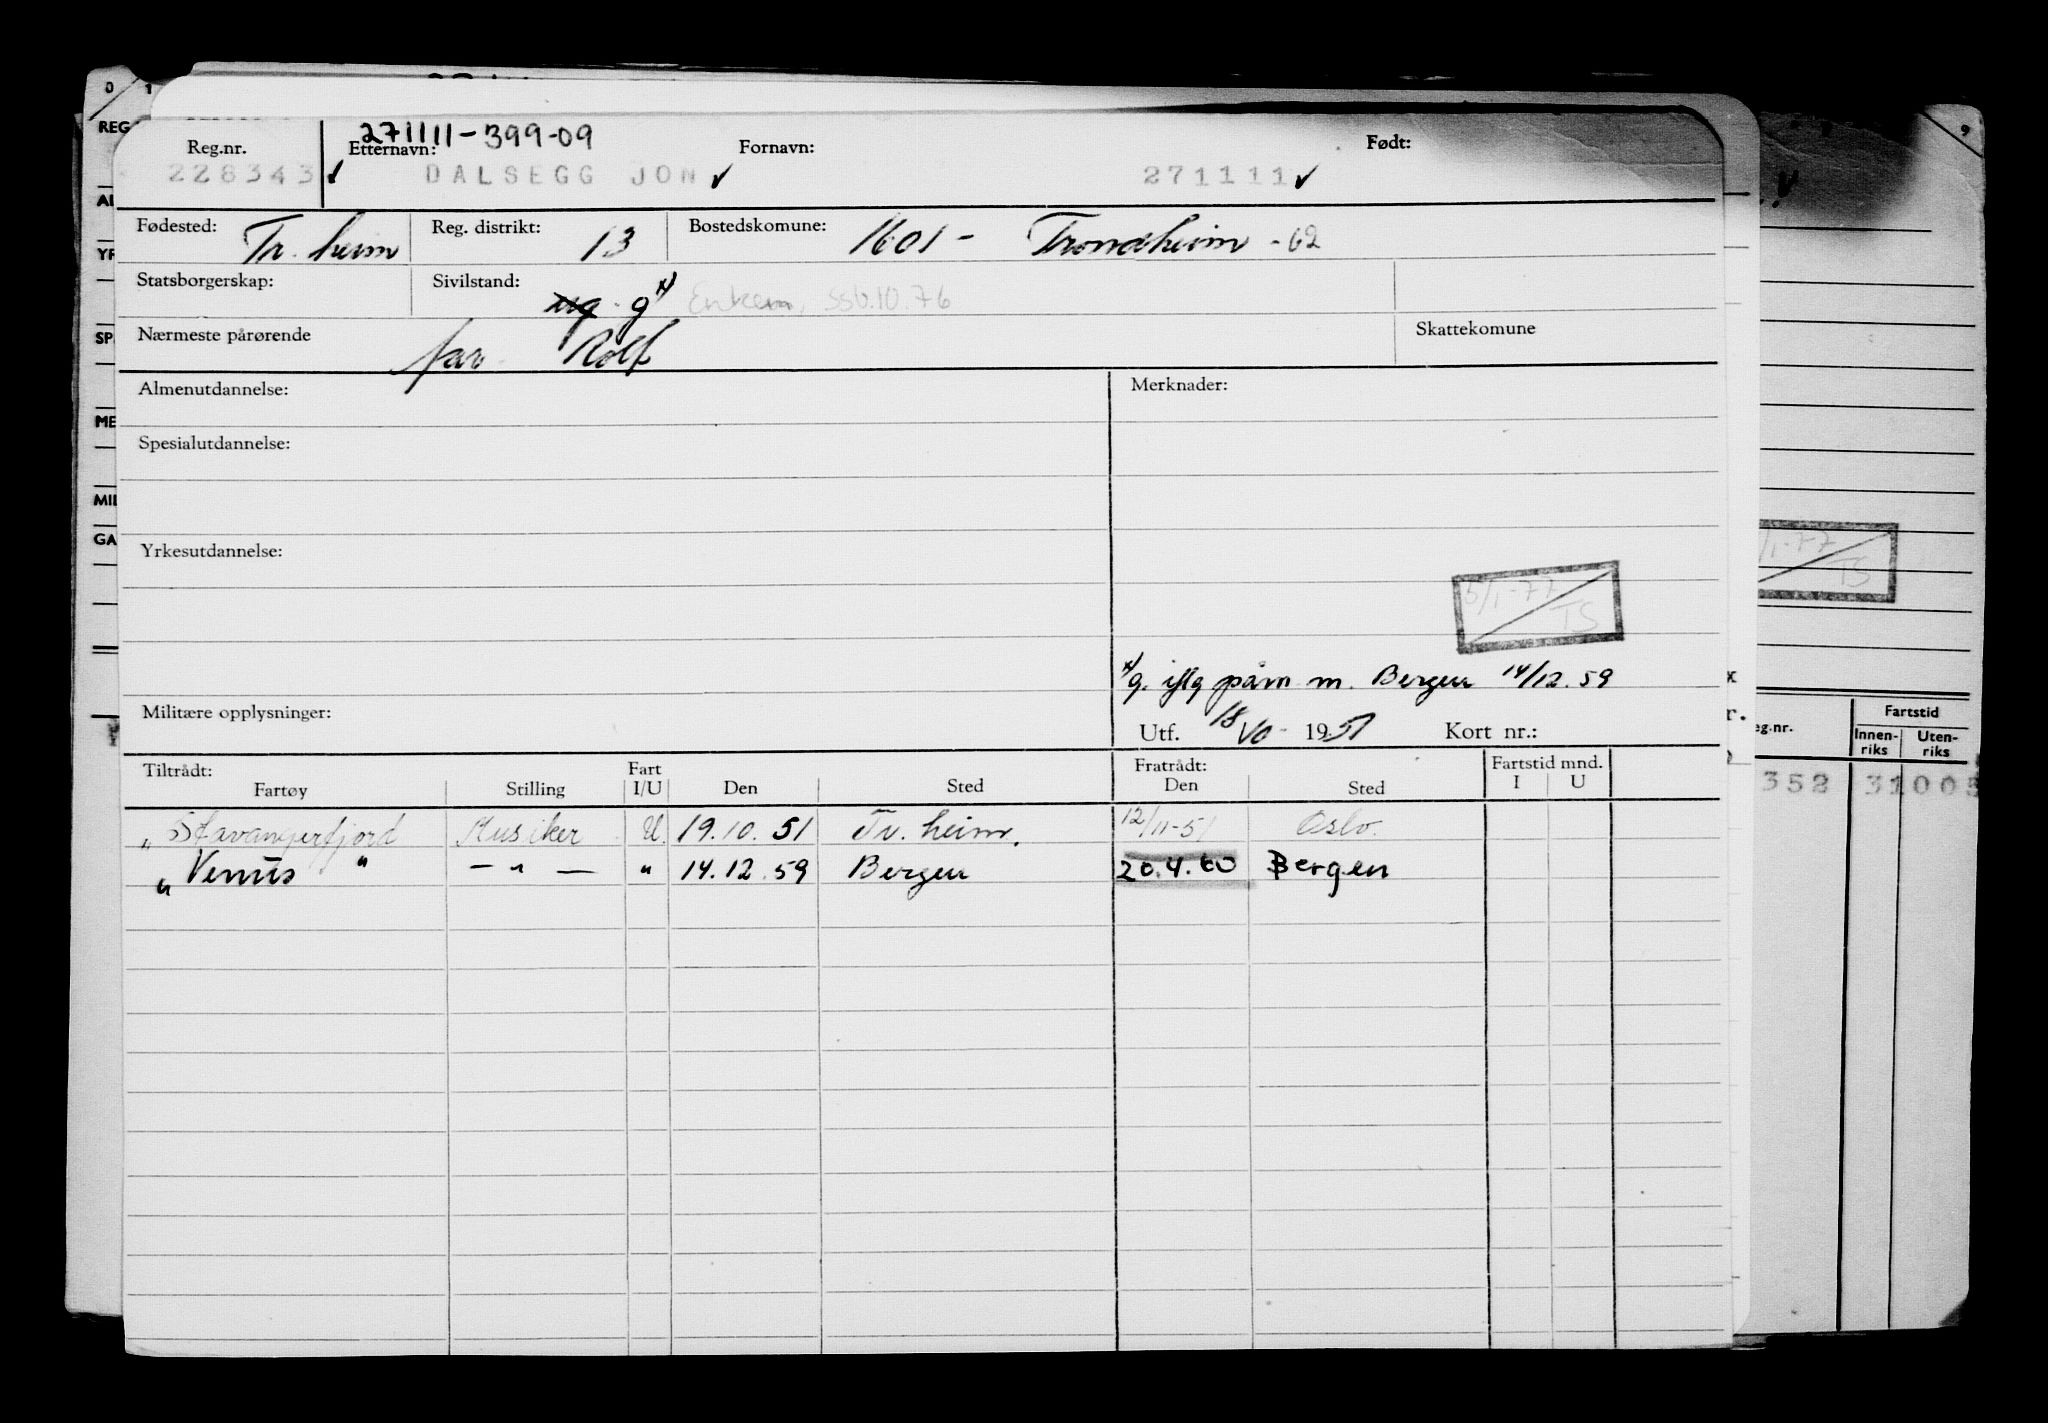 271111-399-09
Reg.nr. Etternavn: Fornavn: Født:
228343 DALSEGG JON 271111
Fødested: Tr.heim Reg. distrikt: 13 Bostedskomune: 1601 - Trondheim -62
Statsborgerskap: Sivilstand: ug. g x) Enkem, SSb.10.76
Nærmeste pårørende far Rolf Skattekomune
Almenutdannelse: Merknader:
Spesialutdannelse:
Yrkesutdannelse:
5/1-77
TS
x) g. iflg påm m. Bergen 14/12.59
Militære opplysninger: Utf. 18/10- 1951 Kort nr.:
Tiltrådt: Fart Fratrådt: Fartstid mnd.
Fartøy Stilling I/U Den Sted Den Sted I U
" Stavangerfjord Musiker U. 19.10.51 Tr.heim. 12/11-51 Oslo.
" Venus " - " - " 14.12.59 Bergen 20.4.60 Bergen
0 1
REG
YR
SP
ME
MIL
GA
9
/1-77
TS
eg.nr. Fartstid
Innen-riks Uten-riks
352 31005